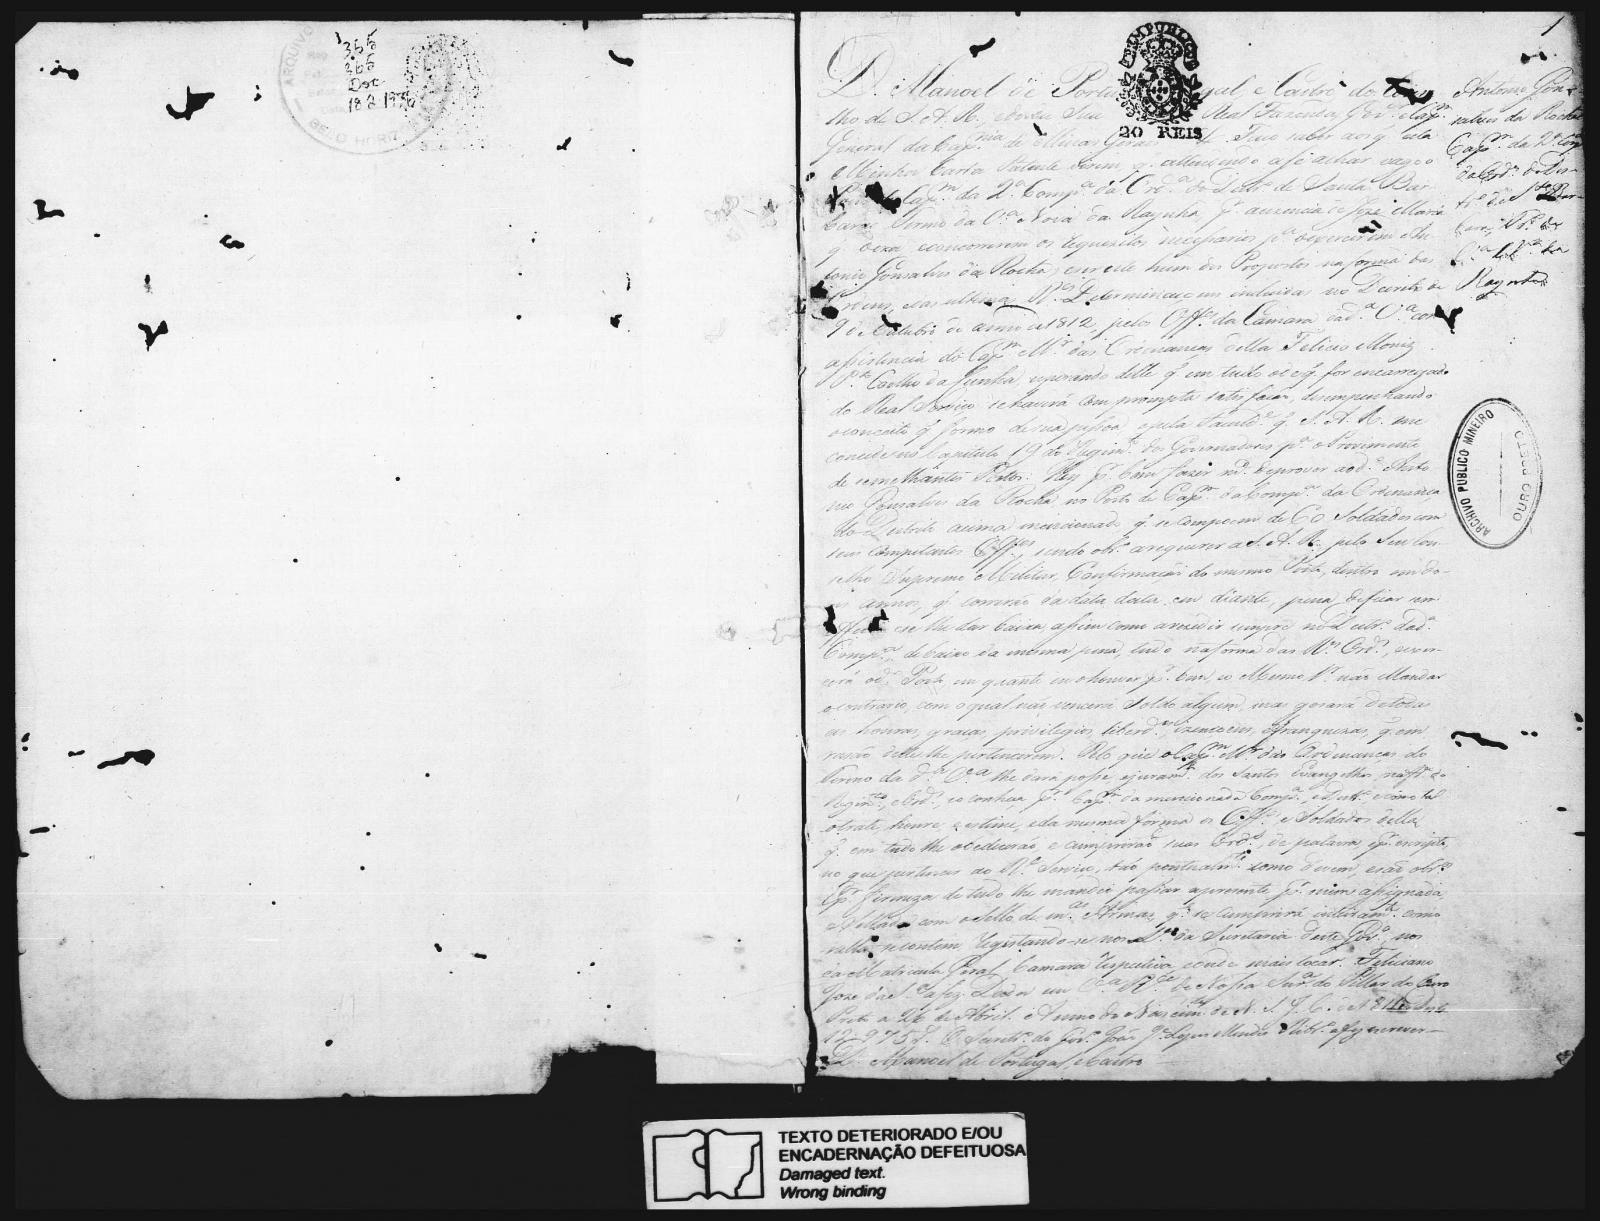 ARQUIVO
BELO HORIZ
355
365
Doc
18 2 1936
1
20 REIS
D. Manoel de Portugal e Castro do Conse
lho de S. A. R., Real Fazenda, Gov.or e Cap.m
General da Cap.nia de Minas Geraes Faço saber aos q. esta
Minha Carta Patente virem, q. attendendo a se achar vago o
Posto de Cap.m da 2.a Comp.a da Ord.a do Destr.o de Santa Bar
bara Termo da V.a Nova da Raynha, p.r auzencia de Joze Maria
q. o era, e concorrerem os requezitos necessarios p.a o exercer em An
tonio Gonsalves da Rocha, ser elle hum dos Propostos na forma das
Ordens, e das ultimas R.s Determinaçoens incluidas no Decreto de
9 de Outubro de anno de 1812, pelos Off.es da Camara da d.a V.a com
assistencia do Cap.m M.r das Ordenanças della Felicio Moniz
P.to Coelho da Cunha, esperando delle q. em tudo o de q. for encarregado
do Real Serviço se haverá com prompta satisfação, desempenhando
o conceito q. formo de sua pessoa e pela Faculd.e q. S. A. R. me
concede no Capitulo 19 do Regim.to dos Governadores p.a o Provimento
de semelhantes Postos: Hey p.r bem fazer m.ce e prover ao d.o Anto
nio Gonsalves da Rocha, no Posto de Cap.m da Comp.a da Ordenança
do Destricto acima mencionado, q. se compoem de 60 Soldados com
seus competentes Off.es, sendo obr.o a requerer a S. A. R. pelo Seu Con
selho Supremo Militar, Confirmação do mesmo Posto, dentro em do
annos, q. correrão da data desta em diante, pena de ficar sem
effeito e se lhe dar baixa, assim como a rezedir sempre no Destr.o da d.a
Comp.a debaixo da mesma pena, tudo na forma das R.s Ord.s, exer
cerá o d.o Posto, em quanto eu o houver p.r bem, e o Mesmo S.r não Mandar
o contrario, com o qual não vencerá Soldo algum, mas gozará de todas
as honras, graças, privilegios, liberd.es, izençoens, e franquezas, q. em
razão delle lhe pertencerem. Pelo que o Cap.m M.r das Ordenanças do
Termo da d.a V.a lhe dará posse e juram.to dos Santos Evangelhos, na fr.a do
Regim.to, e Ord.s, e o conheça p.r Cap.m da mencionada Comp.a, e Destr.o, e como tal
o trate, honre, e estime, e da mesma fórma os Off.es e Soldados della
q. em tudo lhe obedecerão, e cumprirão suas Ord.s, de palavra, e p.r escripto
no que pertencer ao R.l Serviço, tão pontualm.te como devem, e são obr.os
E p.r firmeza de tudo lhe mandei passar a prezente p.r mim assignada
e Sellada com o Sello de m.as Armas, q. se cumprirá inteiram.te como
nella se contém, registando-se nos L.os da Secretaria deste Gov.o, nos
da Matricula Geral, Camara respectiva, e onde mais tocar. Feliciano
Joze da S.a a fez. Dada em V.a R.ca de Nossa Snr.a do Pillar do Ouro
Preto a 26 de Abril. Anno do Nascim.to de N. S. J. C. de
O Secret.o do Gov.o João J.e Lopes Mendes Ribr.o a fez escrever
D. Manoel de Portugal e Castro
Antonio Gon
salves da Rocha
Cap.m da 2.a Comp
da Ord.a do Des
tr.o de S.ta Bar
bara, T.o da
V.a N.a da
Raynha
ARCHIVO PUBLICO MINEIRO
OURO PRETO
TEXTO DETERIORADO E/OU
ENCADERNAÇÃO DEFEITUOSA
Damaged text.
Wrong binding